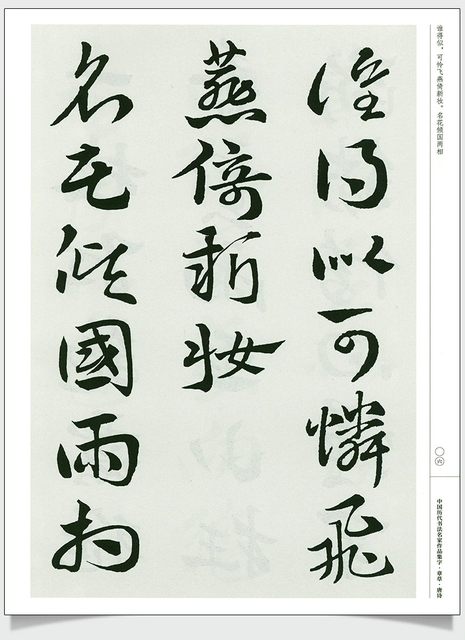 谁得似，可怜飞燕倚新妆。名花倾国两相
〇六
中国历代书法名家作品集字·章草·唐诗
誰得似可憐飛
燕倚新妝
名花傾國兩相